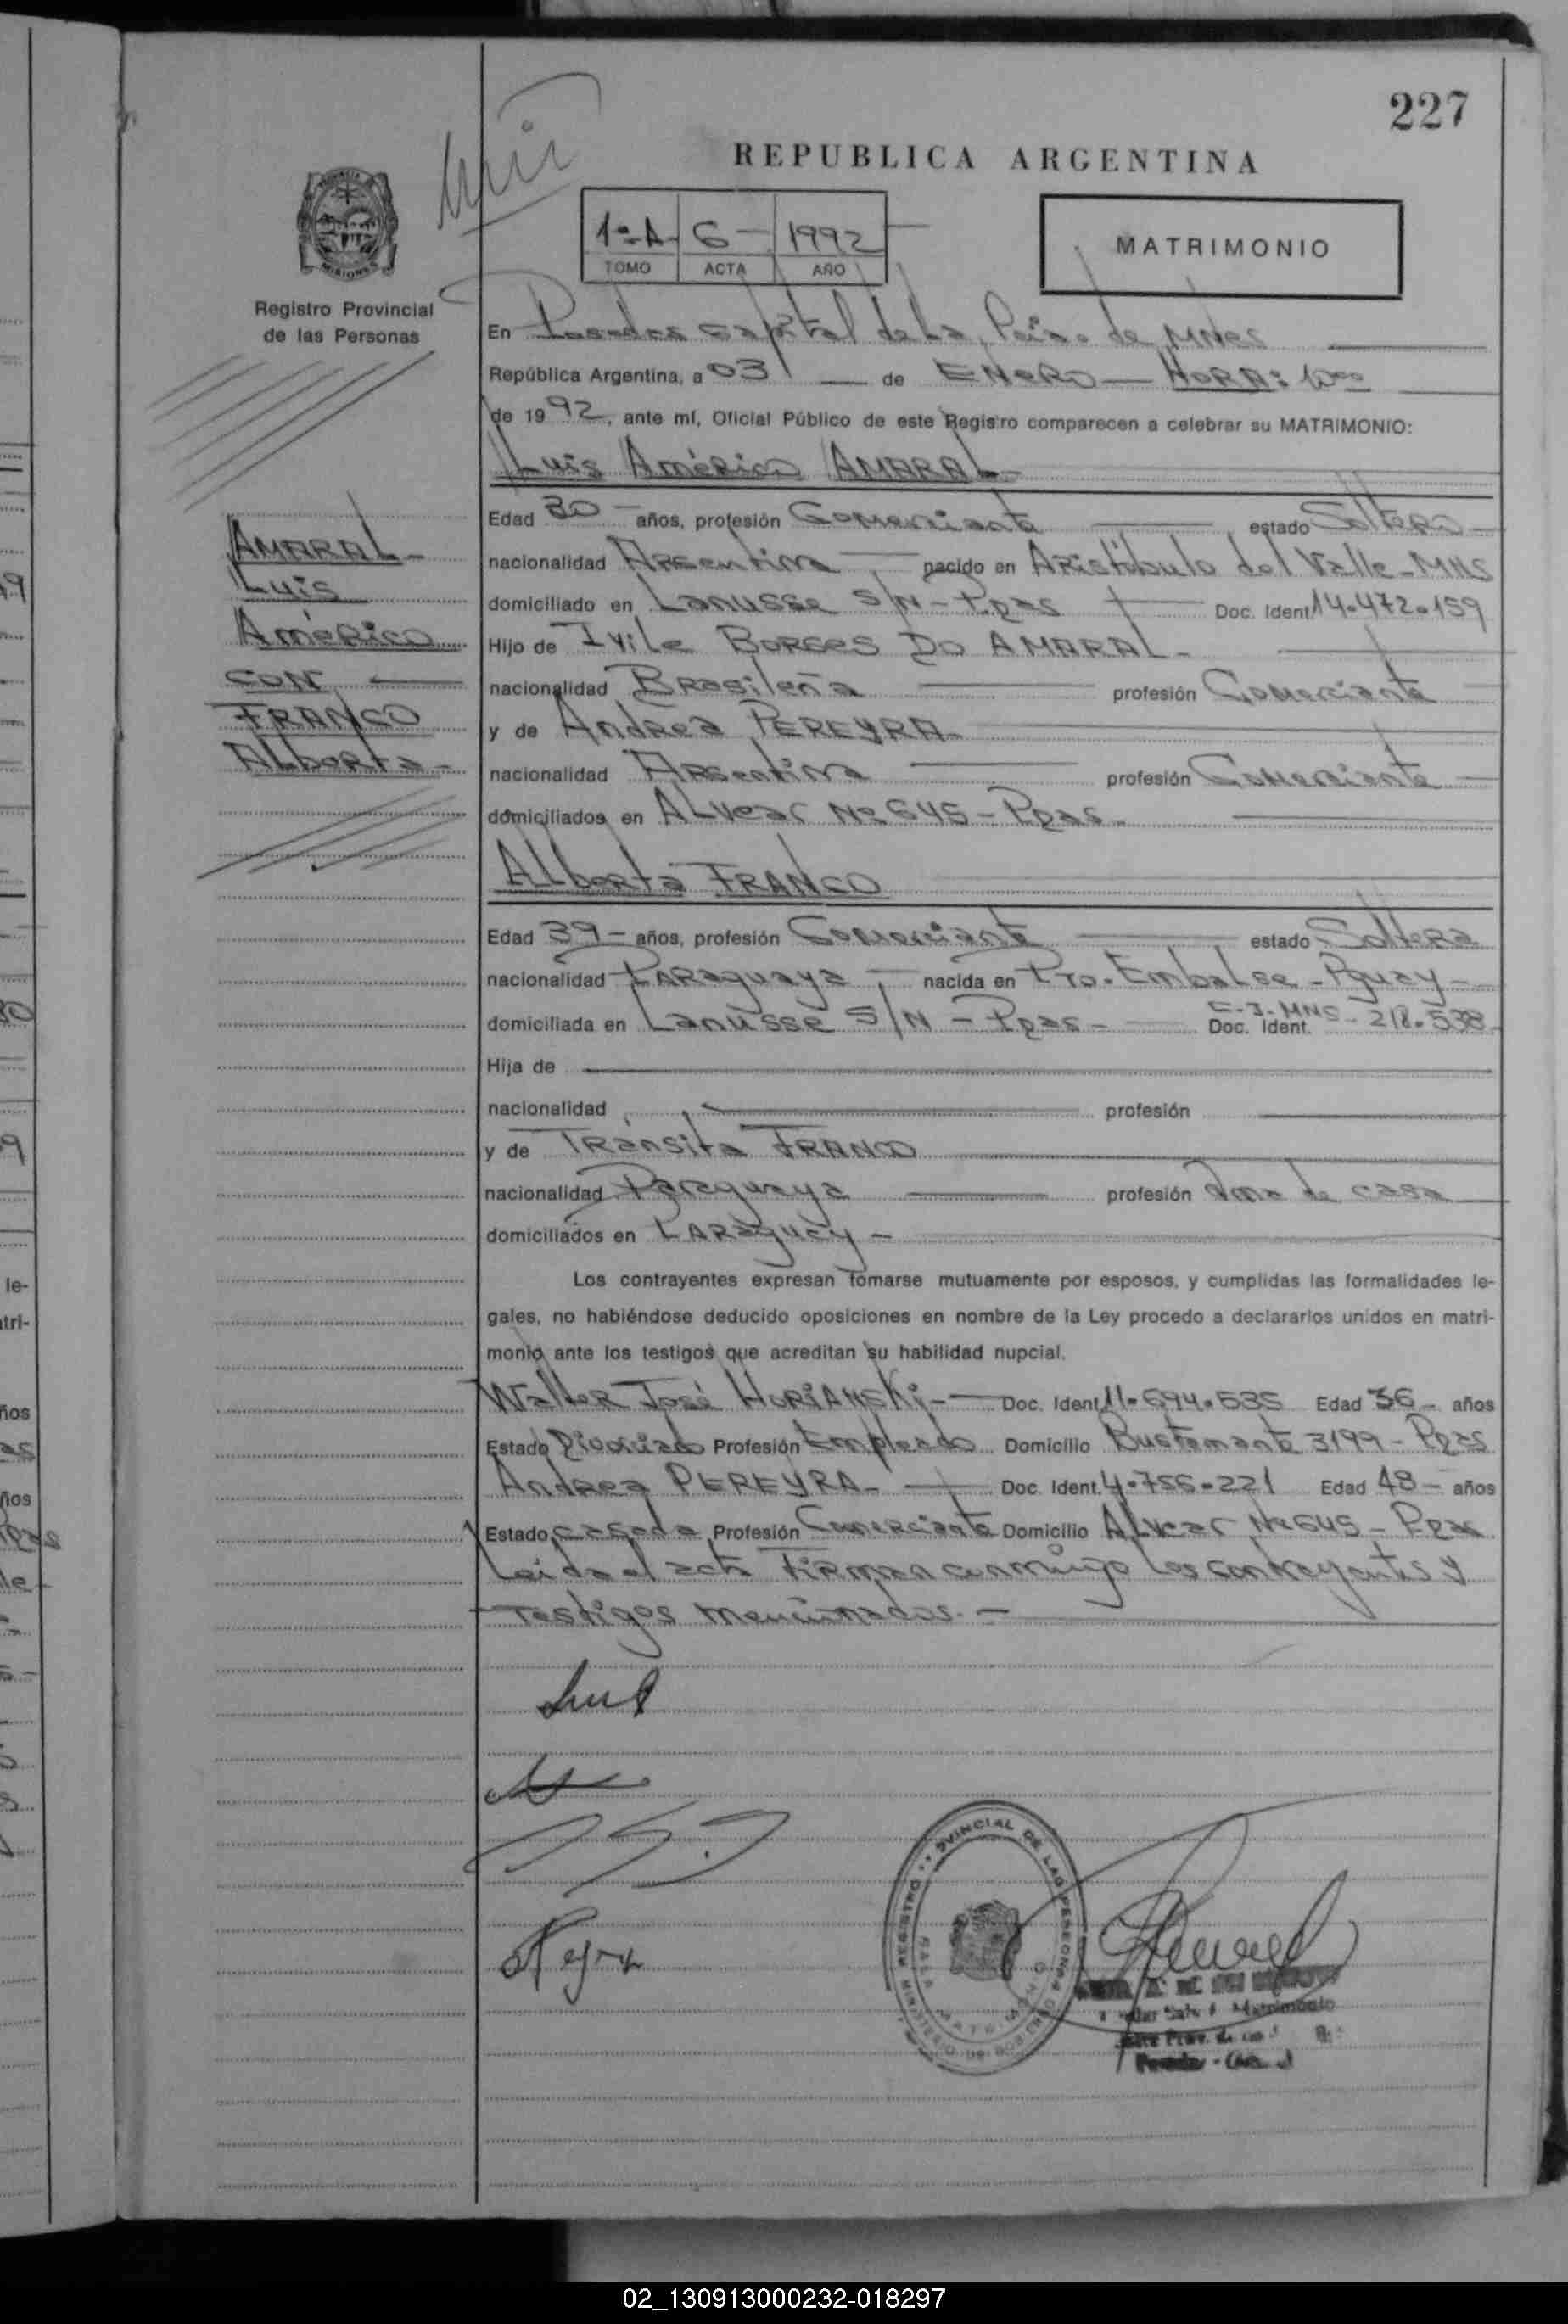 227
REPUBLICA ARGENTINA
MISIONES
Registro Provincial
de las Personas
1º-A- 6- 1992
TOMO ACTA AÑO
MATRIMONIO
En Posadas capital de la Pcia. de Mnes
República Argentina, a 03 de ENERO - HORA: 10°°
de 1992, ante mí, Oficial Público de este Registro comparecen a celebrar su MATRIMONIO:
Luis Américo AMARAL-
Edad 30- años, profesión Comerciante estado Soltero-
AMARAL-
nacionalidad Argentina nacido en Aristóbulo del Valle-MNS
Luis
domiciliado en Lanusse S/N-Ppas Doc. Ident 14.472.159
Américo
Hijo de Ivile BORGES DO AMARAL-
CON
nacionalidad Brasileña profesión Comerciante
FRANCO
y de Andrea PEREYRA-
Alberta-
nacionalidad Argentina profesión Comerciante
domiciliados en ALvear Nº645-Ppas.
Alberta FRANCO
Edad 39- años, profesión Comerciante estado Soltera
nacionalidad PARaguaya nacida en Pto. Embalse-Pguay-
domiciliada en Lanusse S/N-Ppas- Doc. Ident. C.I.MNS-218.538
Hija de
nacionalidad profesión
y de Tránsita FRANCO
nacionalidad Paraguaya profesión Ama de casa
domiciliados en PARaguay-
Los contrayentes expresan tomarse mutuamente por esposos, y cumplidas las formalidades le-
gales, no habiéndose deducido oposiciones en nombre de la Ley procedo a declararlos unidos en matri-
monio ante los testigos que acreditan su habilidad nupcial.
Walter José HURIANSKi- Doc. Ident 11.694.535 Edad 36- años
Estado Divorciado Profesión Empleado Domicilio Bustamante 3199-Ppas
Andrea PEREYRA- Doc. Ident. 4.756.221 Edad 48- años
Estado casada Profesión Comerciante Domicilio ALvear Nº645-Ppas
Leida el acta Firman conmigo los contrayentes y
testigos mencionados.-
REGISTRO PROVINCIAL DE LAS PERSONAS
MINISTERIO DE GOBIERNO
SALA MATRIMONIO
Matrimonio
02_130913000232-018297